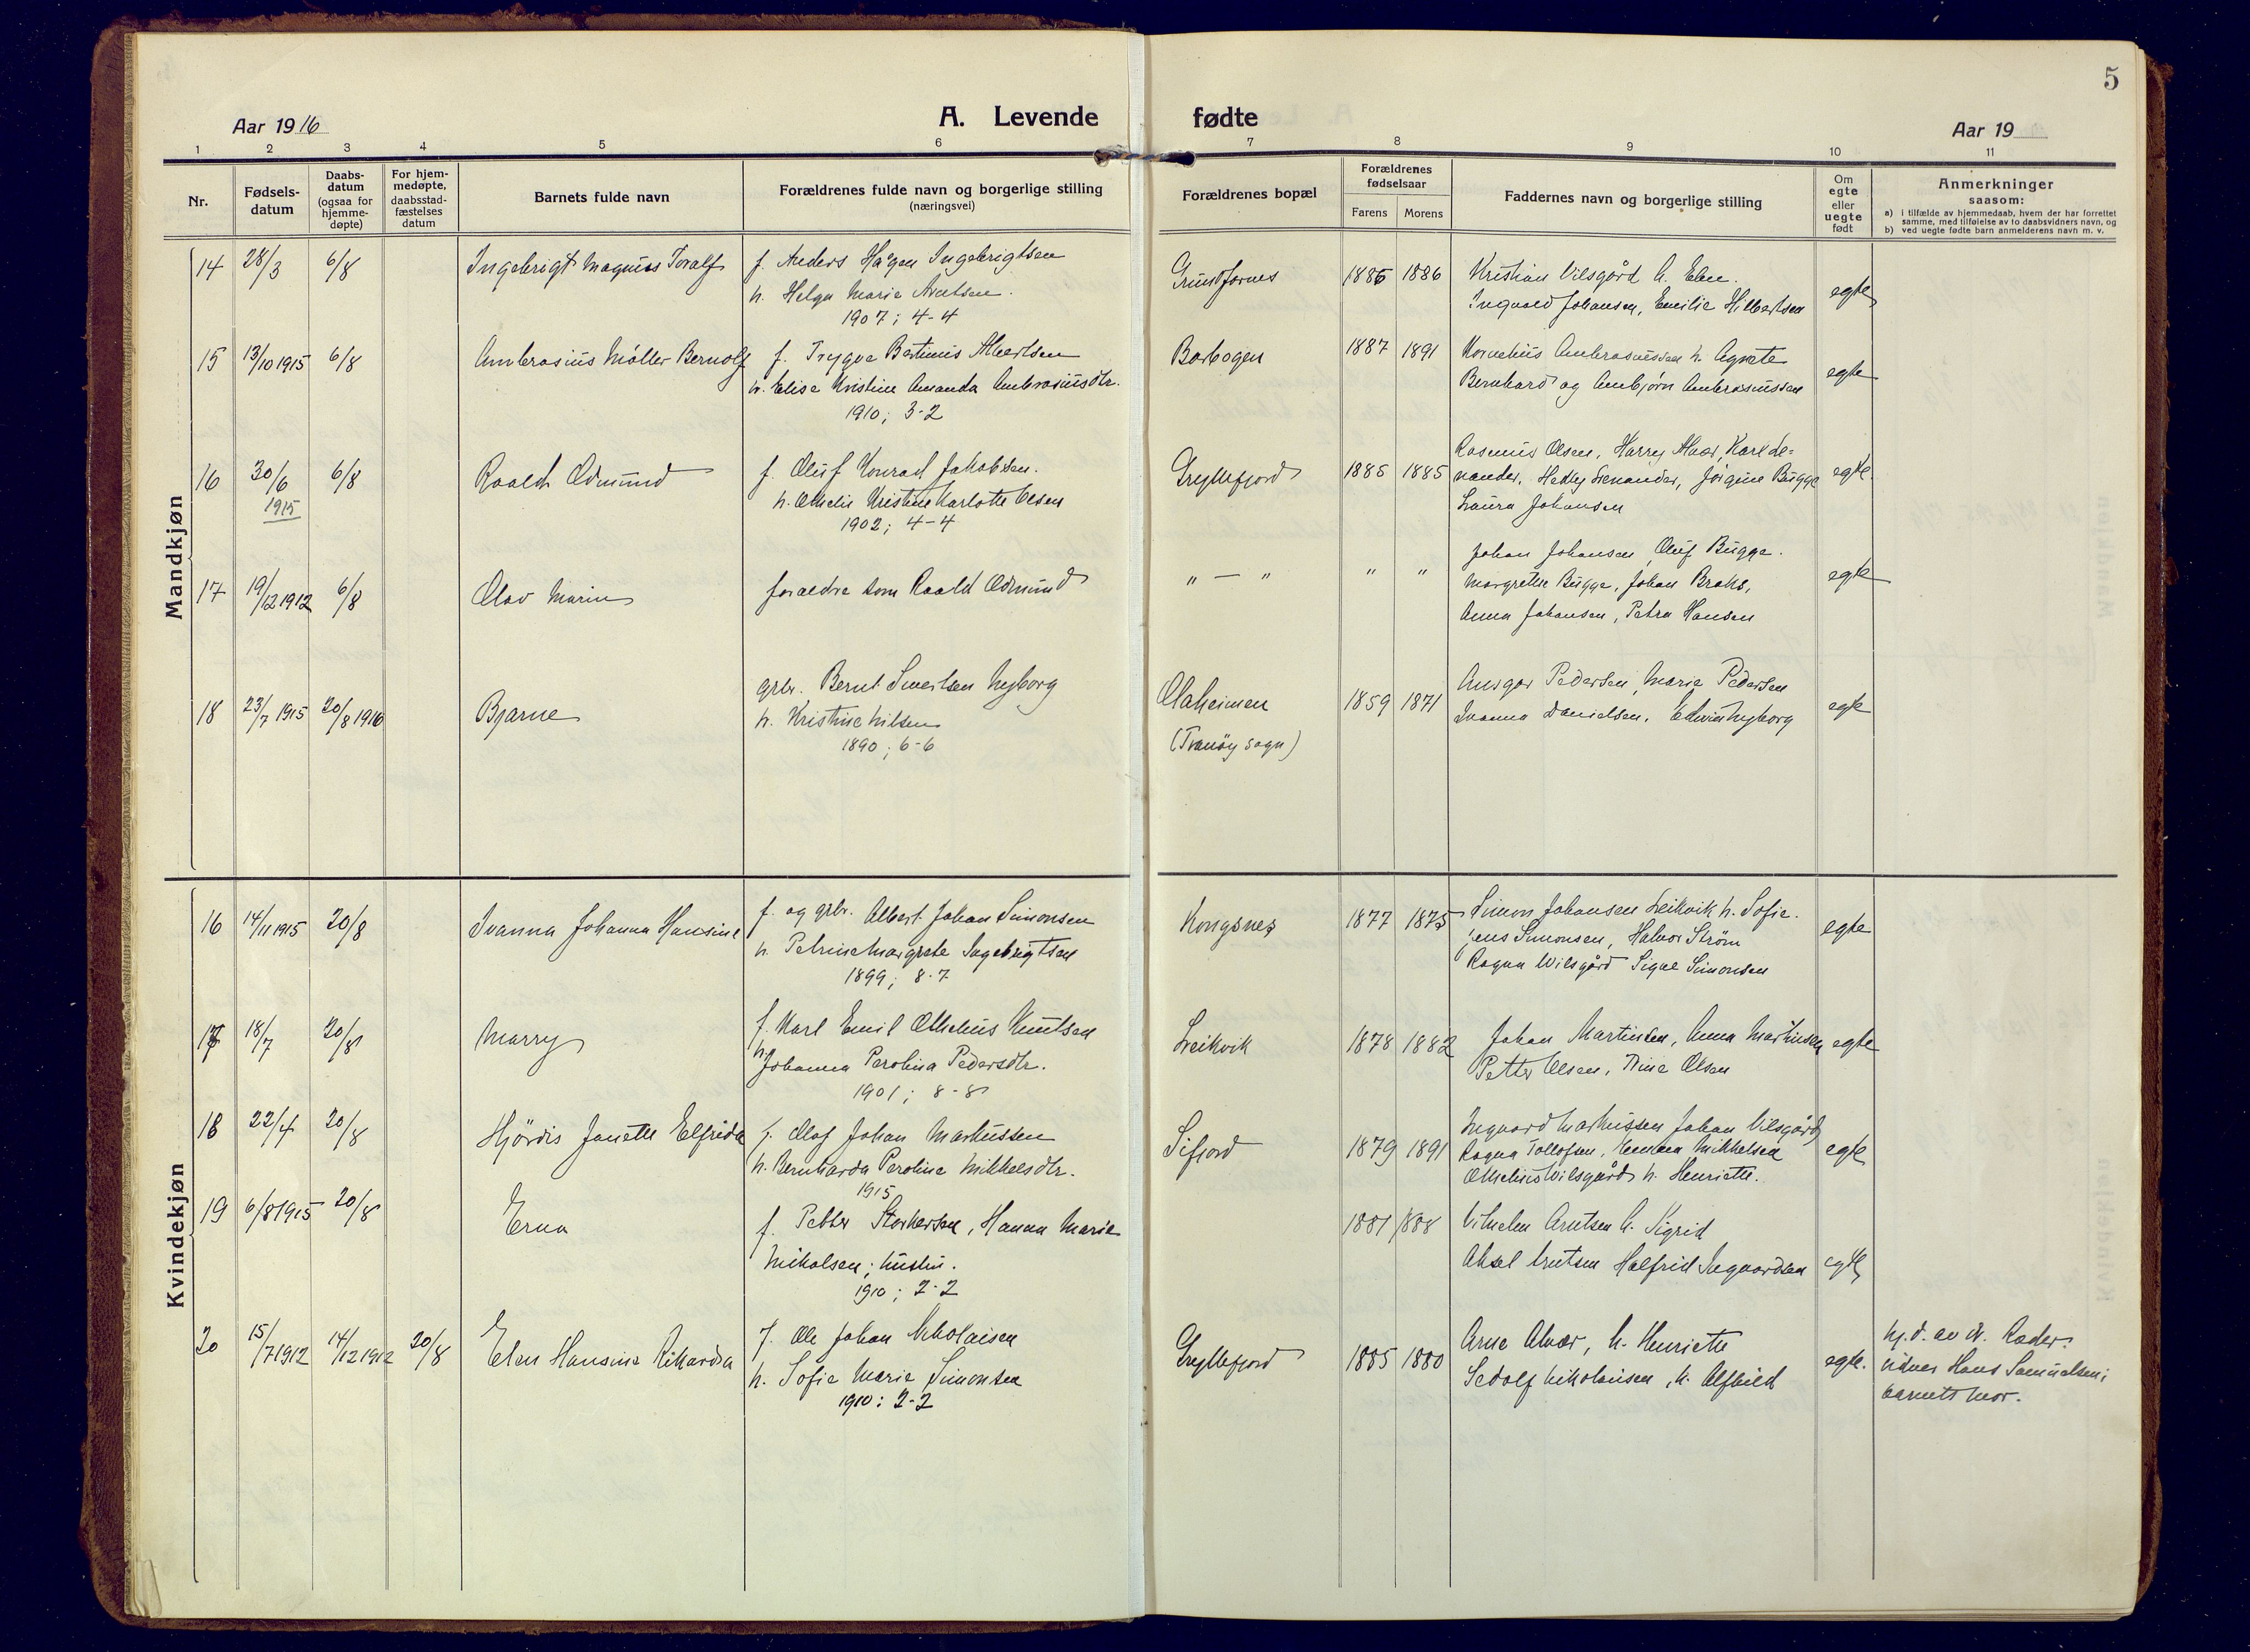 5
Aar 1916
A. Levende
fødte
Aar 19
1 2 3 4 5 6 7 8 9 10 11
Nr.
Fødsels-
datum
Daabs-
datum
(ogsaa for
hjemme-
døpte)
For hjem-
medøpte,
daabsstad-
fæstelses
datum
Barnets fulde navn
Forældrenes fulde navn og borgerlige stilling
(næringsvei)
Forældrenes bopæl
Forældrenes
fødselsaar
Farens Morens
Faddernes navn og borgerlige stilling
Om
egte
eller
uegte
født
Anmerkninger
saasom:
a) i tilfælde av hjemmedaab, hvem der har forrettet
samme, med tilføielse av to daabsvidners navn, og
b) ved uegte fødte barn anmelderens navn m. v.
Mandkjøn
14 28/3 6/8 Ingebrigt Magnus Toralf
f. Anders Hågen Ingebrigtsen
h. Helga Marie Arntsen.
1907; 4-4
Grundfarnes 1886 1886
Kristian Vilsgård h. Elen.
Ingvald Johansen, Emilie Hilbertsen
egte
15 13/10 1915 6/8 Ambrosius Møller Bernolf
f. Trygve Bertinus Albertsen
h. Elise Kristine Amanda Ambrosiusdtr.
1910; 3-2
Barbogen 1887 1891
Kornelius Ambrosiussen h. Agnete
Bernhard og Arnbjørn Ambrosiussen
egte
16 30/6 1915 6/8 Roald Edmund
f. Oluf Konrad Jakobsen.
h. Othelie Kristine Karlotte Olsen
1902; 4-4
Gryllefjord 1885 1885
Rasmus Olsen, Harry Alvær, Karl Le=
nander, Hedley Lenander, Jørgine Bugge
Laura Johansen
egte
17 19/12 1912 6/8 Olav Marin
forældre som Roald Edmund
" — " " "
Johan Johansen, Oluf Bugge.
Margrethe Bugge, Johan Broks,
Anna Johansen, Petra Hansen
egte
18 23/7 1915 20/8 1916 Bjarne
grbr. Bernt Sivertsen Nyborg
h. Kristine Nilsen
1890; 6-6
Olaheimen
(Tranøy sogn)
1859 1871
Ansgar Pedersen, Marie Pedersen
Ivanna Danielsen, Edvin Nyborg
egte
Kvindekjøn
16 14/11 1915 20/8 Ivanna Johanna Hansine
f. og grbr. Albert Johan Simonsen
h. Petrine Margrete Ingebrigtsen
1899; 8-7
Kongsnes 1877 1875
Simon Johansen Leikvik h. Sofie.
Jens Simonsen, Halvor Strøm
Ragna Wilsgård Signe Simonsen
egte
17 18/7 20/8 Marry
f. Karl Emil Othelius Knutsen
h. Johanna Perolina Pedersdtr.
1901; 8-8
Leikvik 1878 1882
Johan Martinsen, Anna Martinsen
Petter Olsen, Dina Olsen
egte
18 22/4 20/8 Hjørdis Janette Elfrida
f. Olaf Johan Markussen
h. Bernharda Peroline Mikkelsdtr.
1915
Sifjord 1879 1891
Ingvard Markussen Johan Vilsgård
Ragna Tollofsen, Mikkelsen
Othelius Wilsgård h. Henriette.
egte
19 6/8 1915 20/8 Erna
f. Petter Storkersen, Hanna Marie
Nikolsen; hustru.
1910; 2-2
1881 1888
Vilhelm Arntsen h. Sigrid
Aksel Arntsen Halfrid Ingvardsen
egte
20 15/7 1912 14/12 1912 20/8 Elen Hansine Rikarda
f. Ole Johan Nikolaisen
h. Sofie Marie Simonsen
1910; 2-2
Gryllefjord 1885 1880
Arne Alvær, h. Henriette
Sedolf Nikolaisen, h. Alfhild
egte.
hj.d. av Rader.
vidner Hans Samuelsen;
barnets mor.